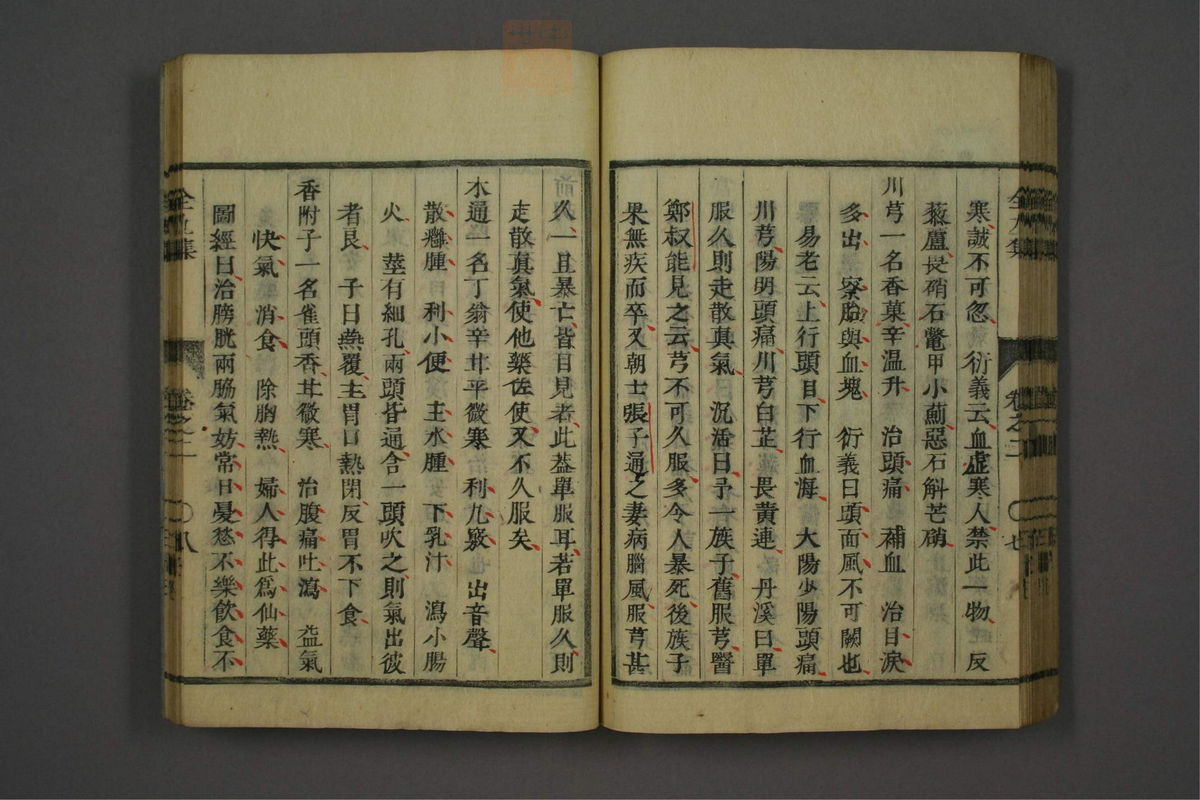 寒誠不可忽 衍義云血虛寒人禁此一物 反
藜蘆畏硝石鼈甲小薊惡石斛芒硝
川芎一名香菓辛温升 治頭痛 補血 治目淚
多出 寮胎與血塊 衍義曰頭面風不可闕也
易老云上行頭目下行血海 大陽少陽頭痛
川芎陽明頭痛川芎白芷 畏黄連 丹溪曰單
服久則走散真氣 沉活曰予一族子舊服芎醫
鄭叔能見之云芎不可久服多令人暴死後族子
果無疾而卒又朝士張子通之妻病腦風服芎甚
久一旦暴亡皆目見者此葢單服耳若單服久則
走散真氣使他藥佐使又不久服矣
木通一名丁翁辛甘平微寒 利九竅 出音聲
散癰腫 利小便 主水腫 下乳汁 瀉小腸
火 莖有細孔兩頭皆通含一頭吹之則氣出彼
者良 子曰燕覆主胃口熱閉反胃不下食
香附子一名雀頭香甘微寒 治腹痛吐瀉 益氣
快氣 消食 除胸熱 婦人得此爲仙藥
圖經曰治膀胱兩脇氣妨常日憂愁不樂飲食不
卷之二
七
卷之二
八